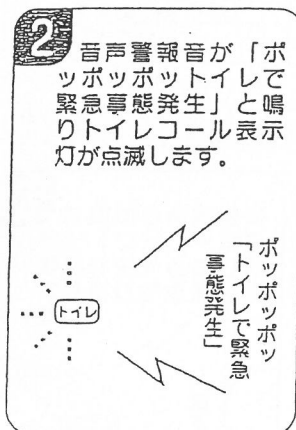 2
音声警報音が「ポ
ッポッポットイレで
緊急事態発生」と鳴
りトイレコール表示
灯が点滅します。
ポッポッポッ
「トイレで緊急
事態発生」
トイレ